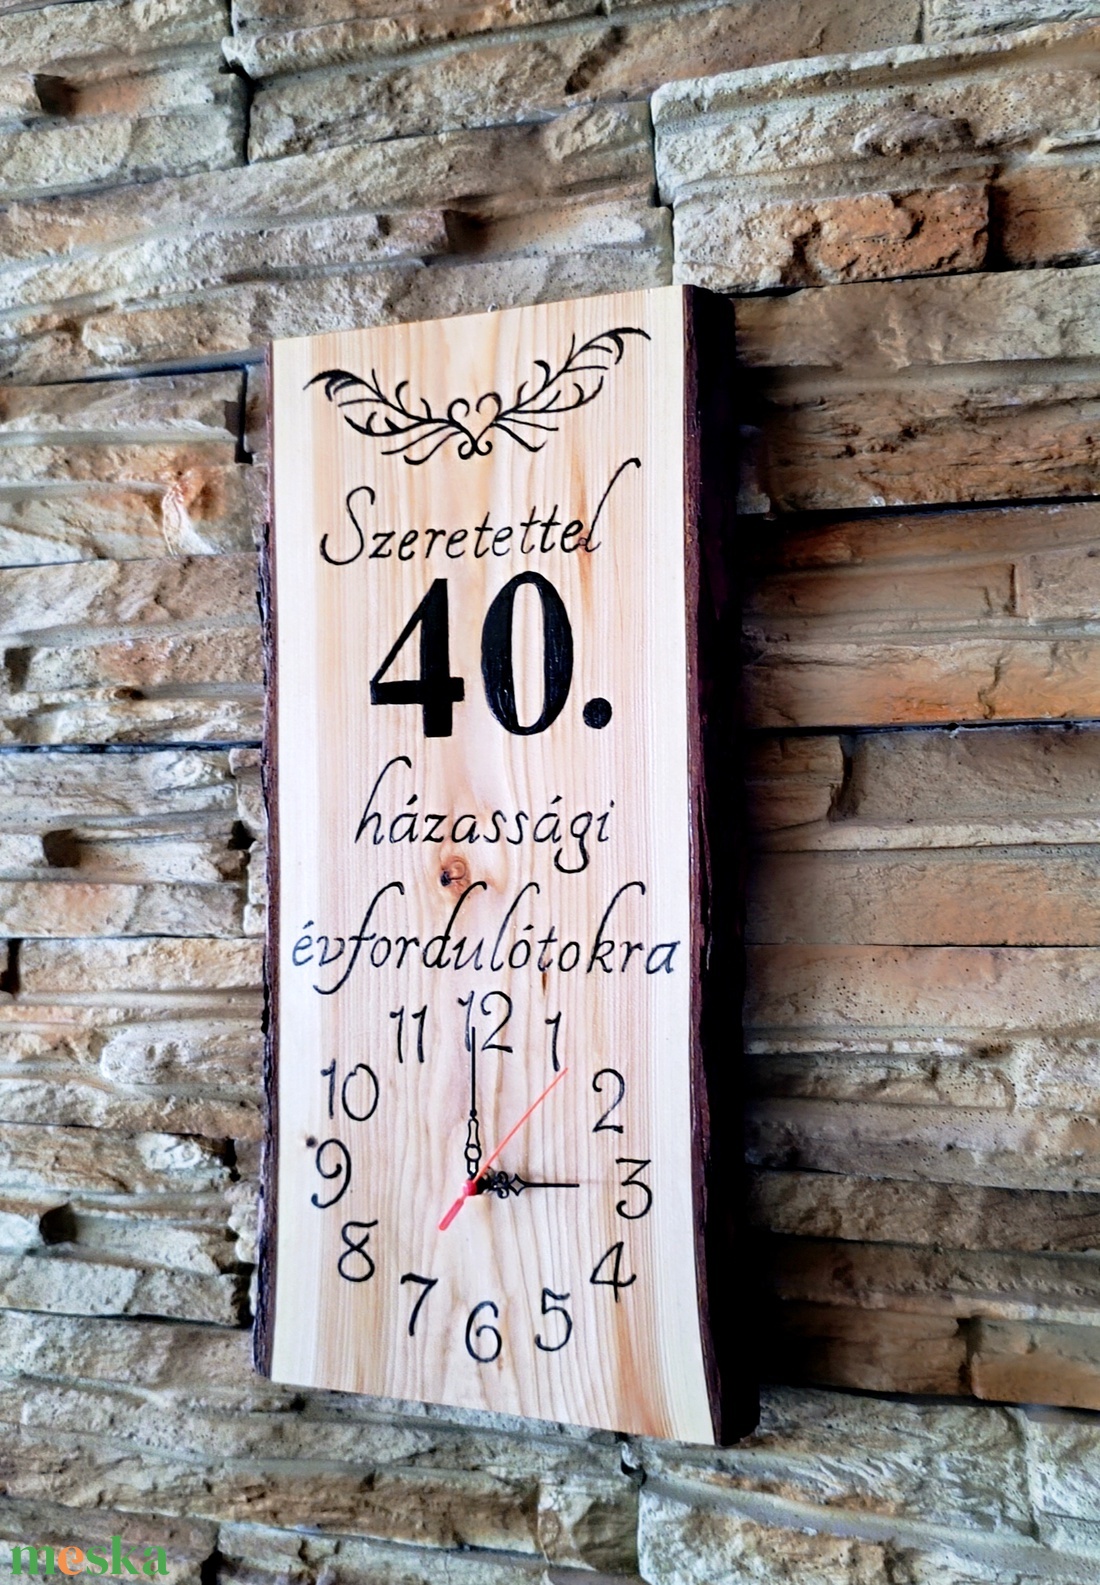 Szeretettel
40.
házassági
évfordulótokra
11 12 1
10 2
9 3
8 4
7 6 5
meska